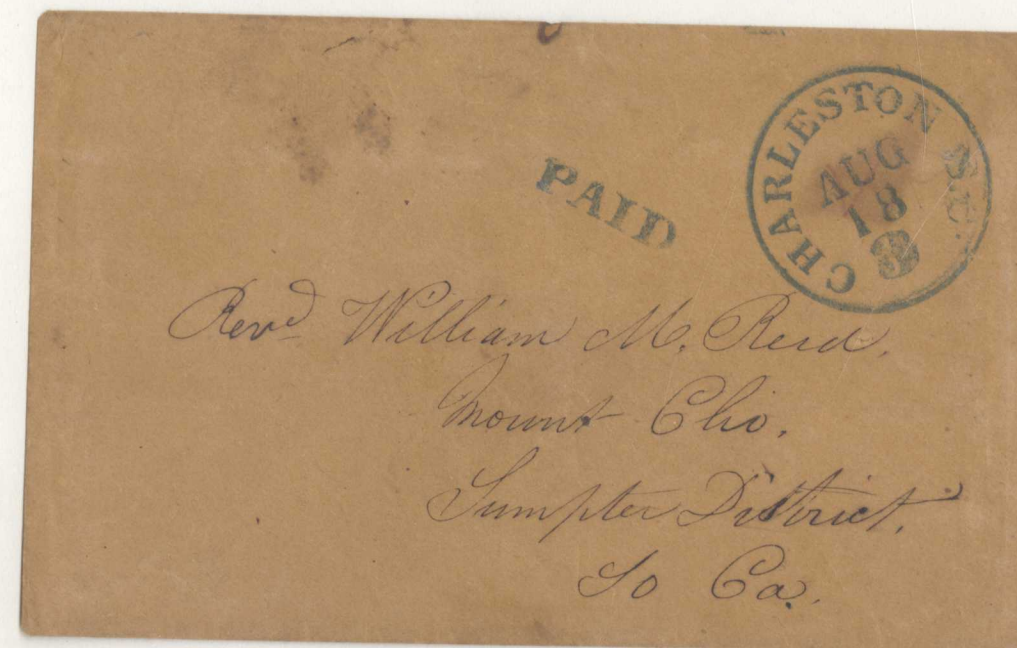 CHARLESTON S.C.
AUG
18
3
PAID
Revd William M. Reid.
Mount Clio.
Sumpter District.
So Ca.